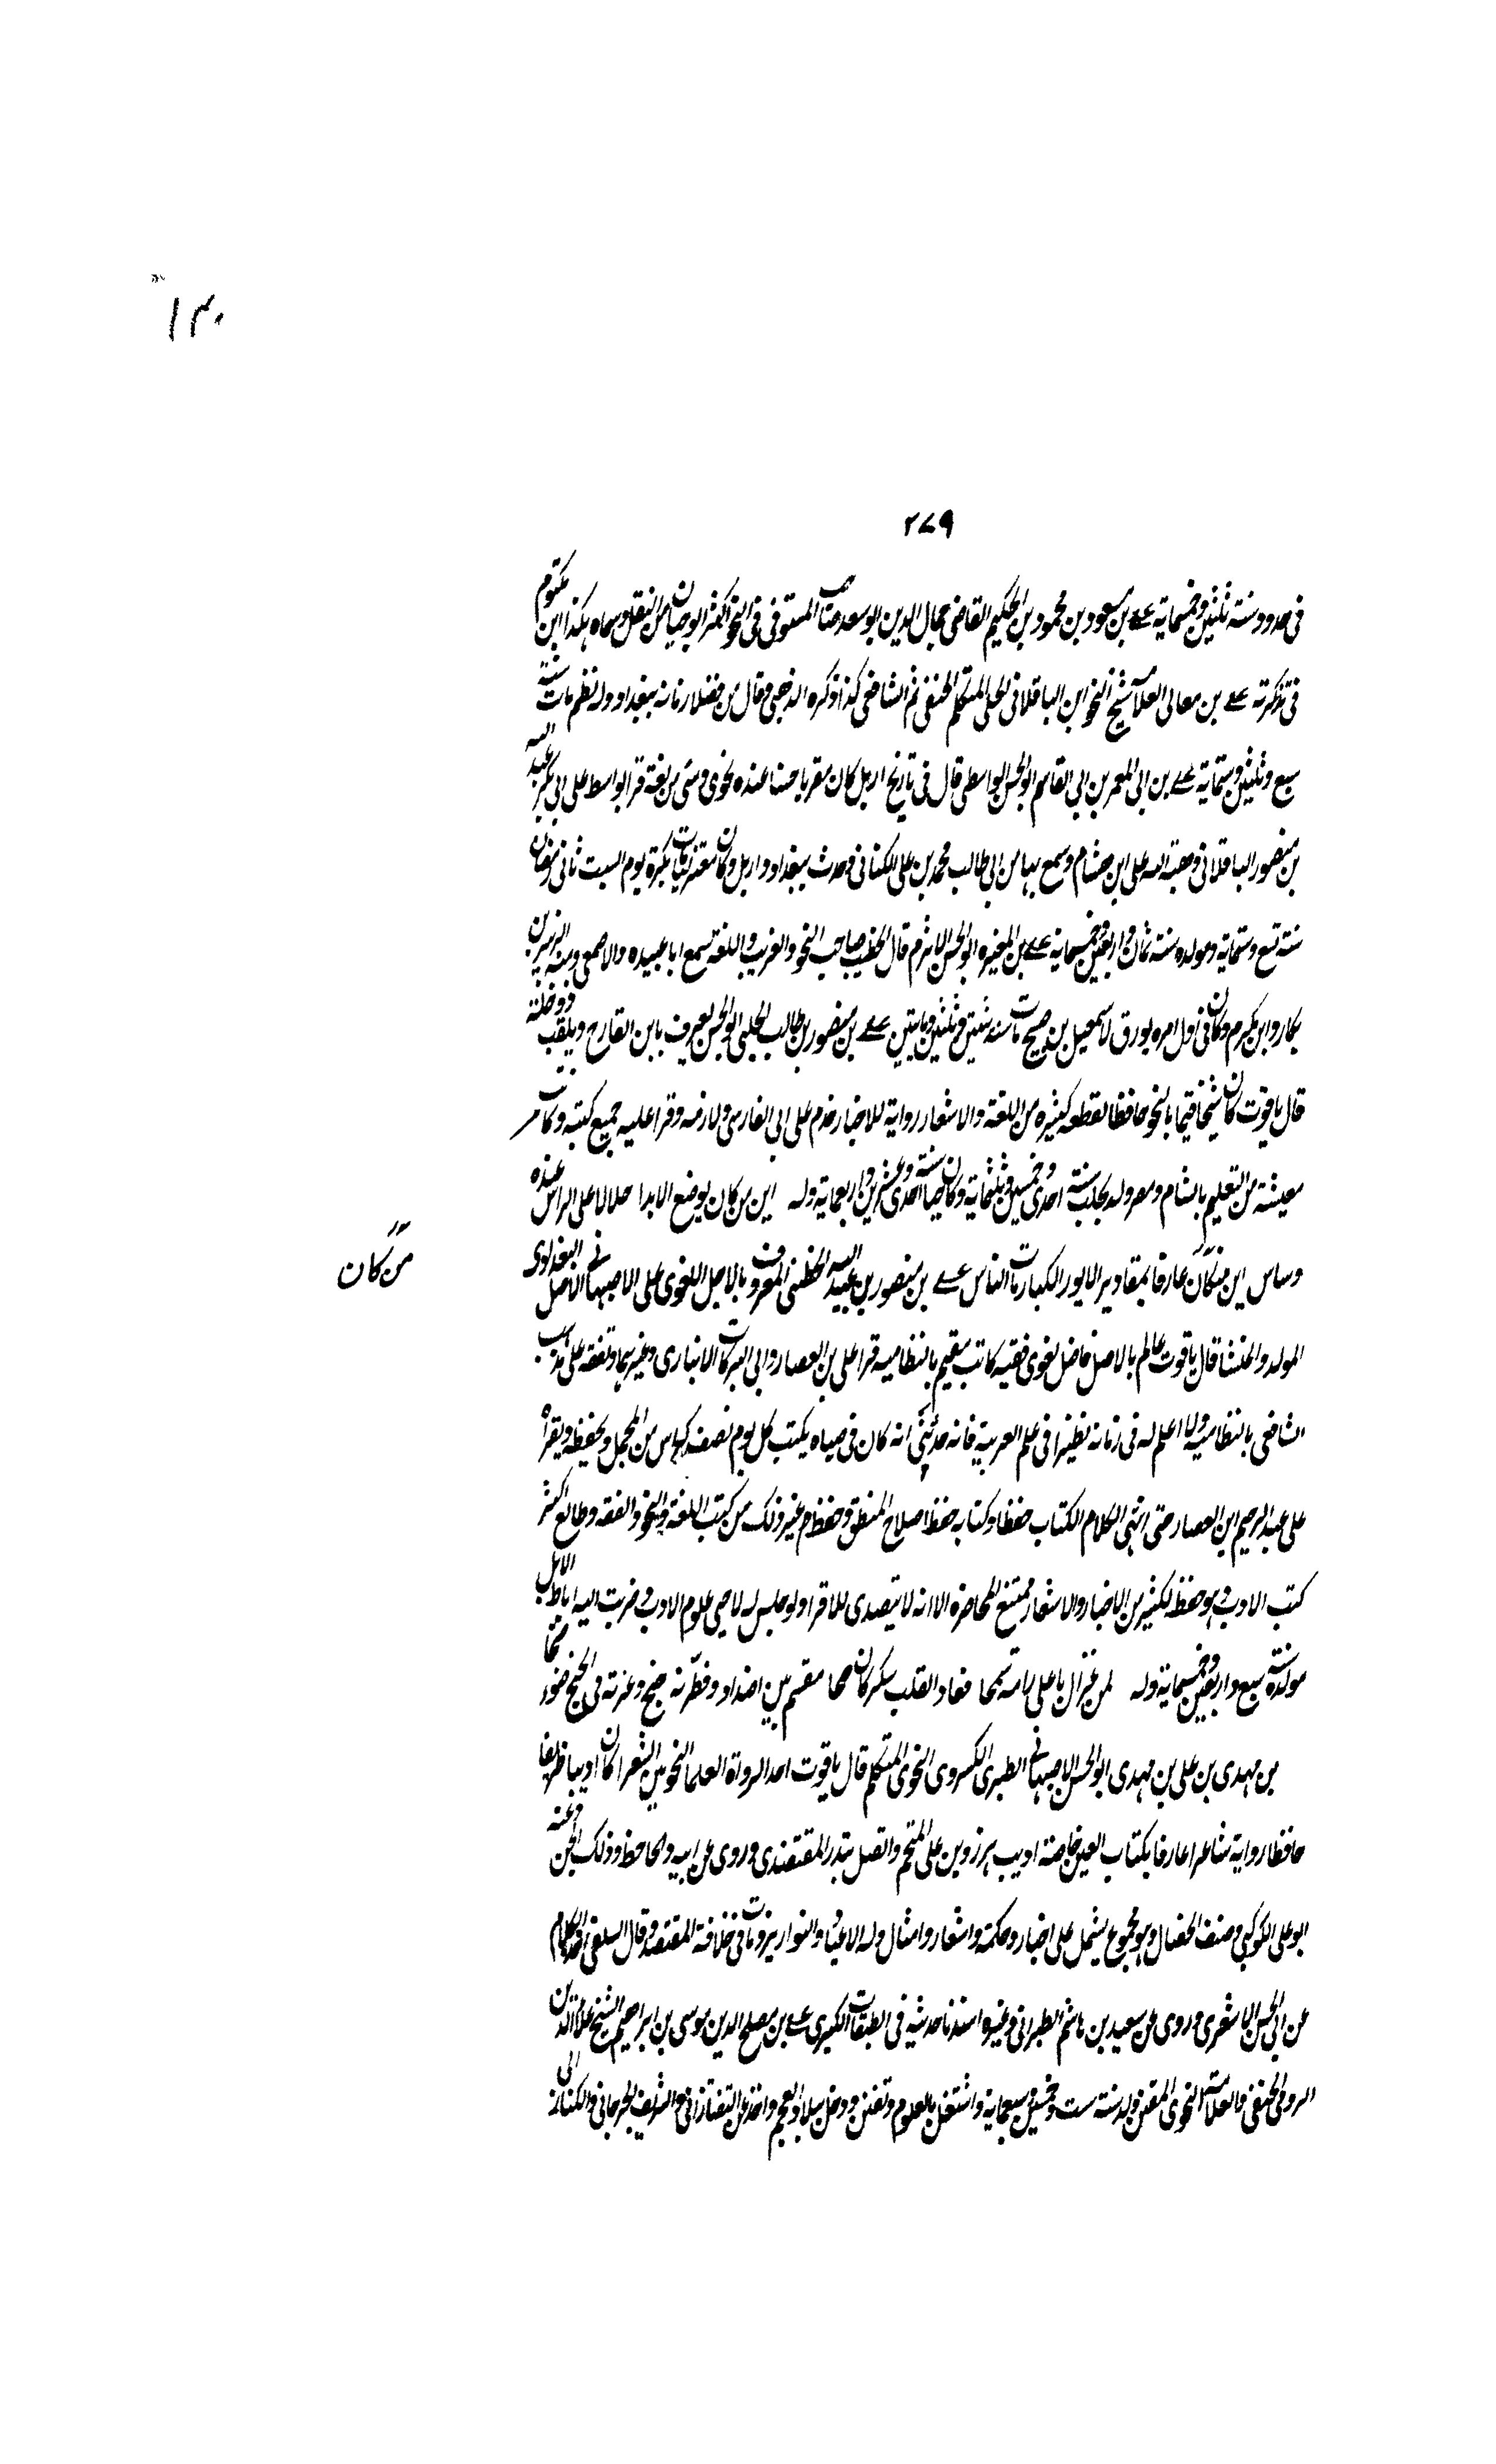 ١٣٠
٢٧٩
في حدود سنة ثلثين وخمسماية علے بن مسعود بن محمود بن الحكيم القاضي جمال الدين ابو سعد صاحب المستوفى في النحو اكثر ابو حيان من النقل وسماه هكذا ابن مكتوم
في تذكرته علے بن معالي العلامة شيخ النحو ابن الباقلاني الحلي المتكلم الحنفي ثم الشافعي كذا ذكره الذهبي وقال من فضلا زمانه ببغداد وله نظم مات سنة
سبع وثلثين وستماية علے بن ابي المعمر بن ابي القاسم ابو الحسن الواسطي قال في تاريخ اربل كان مقريا حسنا عنده نحو وشي من لغة قرا بواسط على ابي بكر عبد الله
بن منصور الباقلاني وهبة الله على ابن هشام وسمع بها من ابي طالب محمد بن علي الكناني وحدث ببغداد واربل وكان معتزليا مات بكرة يوم السبت ثاني رمضان
سنة تسع وستماية ومولده سنة ثمان واربعين وخمسماية علے بن المغيره ابو الحسن الاثرم قال الخطيب صاحب النحو والغريب واللغة سمع ابا عبيده والاصمعي ومنه الزبير بن
بكار وابن مكرم وكان في اول امره يورق لاسمعيل بن صبيح مات سنه ثنتين وثلثين ومايتين علے بن منصور بن طالب الحلبي ابو الحسن يعرف بابن القارح ويلقب دوخلة
قال ياقوت كان شيخا قيما بالنحو حافظا لقطعه كثيره من اللغة والاشعار رواية للاخبار خدم على ابي الفارسي ولازمه وقرا عليه جميع كتبه وكانت
معيشة من التعليم بالشام ومصر ولد بحلب سنة احدى وخمسين وثلثماية وكان حيا سنة احدى وعشرين واربعماية وله اين من كان يوضع الابدا حلالا على الراس عنده
وساس اين من كان عارفا بمقادير الايور الكبار مات الناس علے بن منصور بن عبيد الله الخطبي المعروف بالاجل اللغوي على الاصبهاني الاصل البغدادي
من كان
المولد والمنشا قال ياقوت عالم بالاصل فاضل لغوي فقيه كاتب مقيم بالنظاميه قرا على بن العصار وابي البركات الانباري وغيرهما وتفقه على مذهب
الشافعي بالنظاميه ولا اعلم له في زمانه نظيرا في علم العربية فانه حدثني انه كان في صباه يكتب كل يوم نصف كراس من المجمل ويحفظه ويقرأه
على عبد الرحيم ابن العصار حتى انهى الكلام الكتاب حفظا وكتابه حفظ اصلاح المنطق وحفظ م غير ذلك من كتب اللغة والنحو والفقه وطالع اكثر
كتب الادب وهو حفظ لكثير من الاخبار والاشعار ممتنع المحاضره الا انه لا يتصدى للاقرا ولو جلس له لاحيى علوم الادب وضربت اليه اباط الابل
مولده سنة سبع واربعين وخمسماية وله لمن غزال باعلى رامة سنحا فعاد القلب سكر كان صحا مقسم بين اضداد وفطرته جنح وغرته في الجنح ضوء ضحا
بن مهدي بن علي بن مهدي ابو الحسن الاصبهاني الطبري الكسروي النحوي المتكلم قال ياقوت احد الرواة العلما النحويين الشعرا كان اديبا ظريفا
حافظا رواية شاعرا عارفا بكتاب العين خاصة اديب هرزوبن علي المنجم واتصل ببدر المعتضدي وروى عن ابيه والحافظ وذلك الجن وعنه
ابو علي الكوكبي وصنف الخصال وهو مجموع يشمل على اخبار وحكمة واشعار وامثال وله الاعياد والنواريز مات في خلافة المعتضد وقال السلفي اخذ الكلام
عن ابي الحسن الاشعري وروى عن سعيد بن هاشم الطبراني وغيره اسندنا حديثه في الطبقات الكبرى علے بن مصلح الدين موسى بن ابراهيم الشيخ علا الدين
الرومي الحنفي قال العلامة النحوي المفنن ولد سنة ست وخمسين وسبعماية واشتغل بالعلوم وتفنن ودخل بلاد العجم واخذ عن التفتازاني والشريف الجرجاني وال